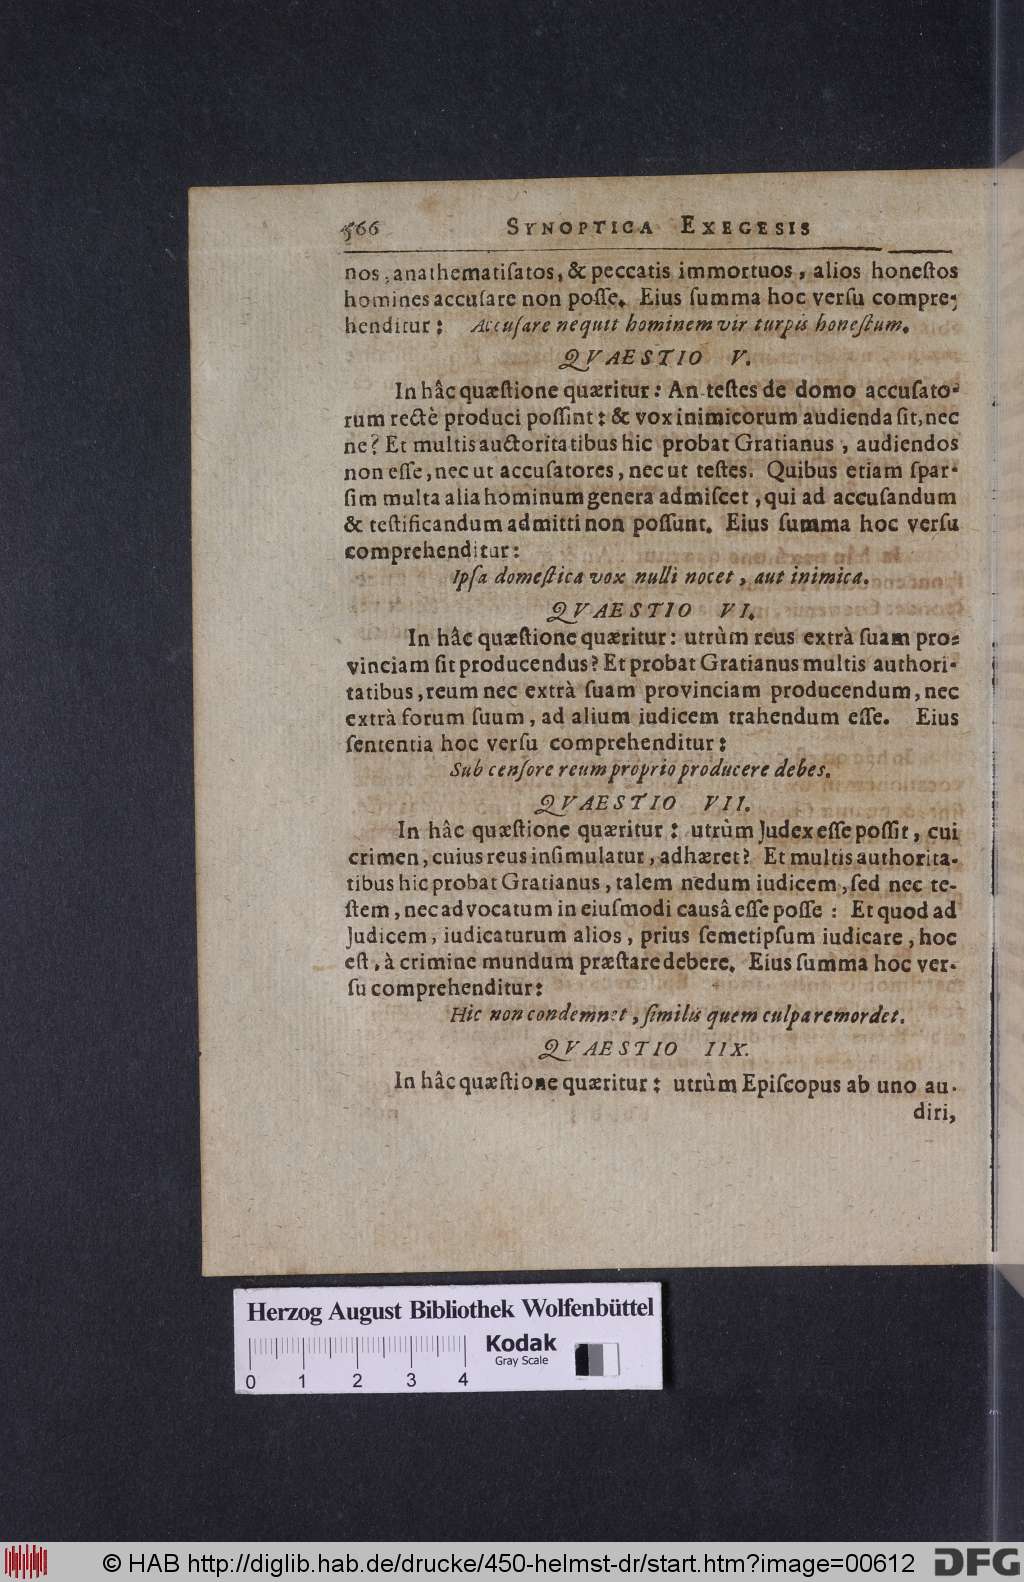 566 SYNOPTICA EXEGESIS
nos, anathematiſatos, & peccatis immortuos, alios honeſtos
homines accuſare non poſſe. Eius ſumma hoc verſu compre-
henditur: Accuſare nequit hominem vir turpis honeſtum.
QVAESTIO V.
In hâc quæſtione quæritur: An teſtes de domo accuſato-
rum rectè produci poſſint: & vox inimicorum audienda ſit, nec
ne? Et multis auctoritatibus hic probat Gratianus, audiendos
non eſſe, nec ut accuſatores, nec ut teſtes. Quibus etiam ſpar-
ſim multa alia hominum genera admiſcet, qui ad accuſandum
& teſtificandum admitti non poſſunt. Eius ſumma hoc verſu
comprehenditur:
Ipſa domeſtica vox nulli nocet, aut inimica.
QVAESTIO VI.
In hâc quæſtione quæritur: utrùm reus extrà ſuam pro-
vinciam ſit producendus? Et probat Gratianus multis authori-
tatibus, reum nec extrà ſuam provinciam producendum, nec
extrà forum ſuum, ad alium iudicem trahendum eſſe. Eius
ſententia hoc verſu comprehenditur:
Sub cenſore reum proprio producere debes.
QVAESTIO VII.
In hâc quæſtione quæritur: utrùm Judex eſſe poſſit, cui
crimen, cuius reus inſimulatur, adhæret? Et multis authorita-
tibus hic probat Gratianus, talem nedum iudicem, ſed nec te-
ſtem, nec advocatum in eiuſmodi causâ eſſe poſſe: Et quod ad
Judicem, iudicaturum alios, prius ſemetipſum iudicare, hoc
eſt, à crimine mundum præſtare debere. Eius ſumma hoc ver-
ſu comprehenditur:
Hic non condemnet, ſimilis quem culpa remordet.
QVAESTIO IIX.
In hâc quæſtione quæritur: utrùm Epiſcopus ab uno au-
diri,
Herzog August Bibliothek Wolfenbüttel
Kodak
Gray Scale
0 1 2 3 4
© HAB http://diglib.hab.de/drucke/450-helmst-dr/start.htm?image=00612
DFG